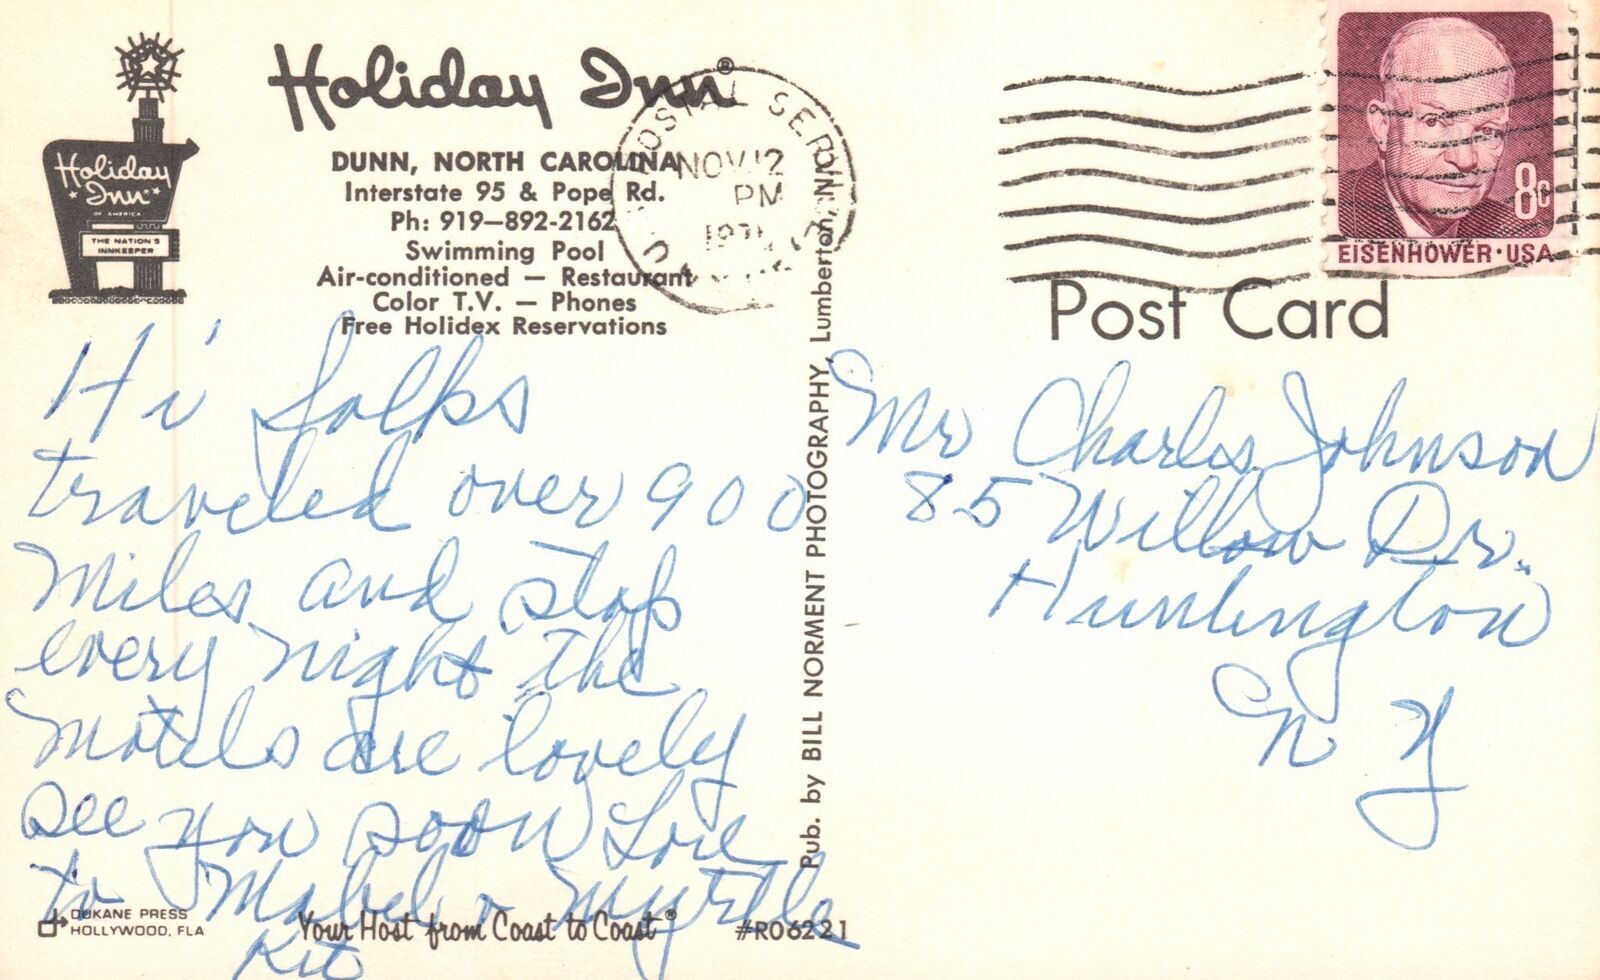 Holiday Inn®
Holiday
Inn
OF AMERICA
THE NATION'S
INNKEEPER
DUNN, NORTH CAROLINA
Interstate 95 & Pope Rd.
Ph: 919-892-2162
Swimming Pool
Air-conditioned — Restaurant
Color T.V. — Phones
Free Holidex Reservations
POSTAL SERVICE
NOV 12
PM
8c
EISENHOWER · USA
Post Card
Hi folks
traveled over 900
Miles and stop
every night the
Motels are lovely
see you soon Love
to Mabel & Myrtle
Kit
Mr Charles Johnson
85 Willow Dr.
Huntington
N Y
Pub. by BILL NORMENT PHOTOGRAPHY, Lumberton, N.C.
DUKANE PRESS
HOLLYWOOD, FLA
Your Host from Coast to Coast®
#R06221